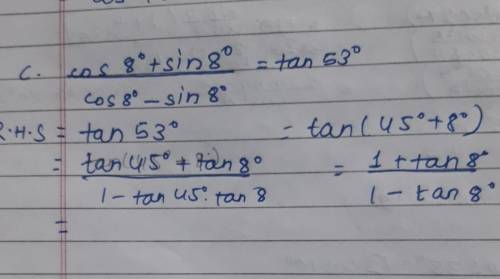 c. cos 8° + sin 8° / cos 8° - sin 8° = tan 53°
R.H.S = tan 53° = tan(45° + 8°)
= tan(45° + tan 8° / 1 - tan 45°. tan 8 = 1 + tan 8° / 1 - tan 8°
=